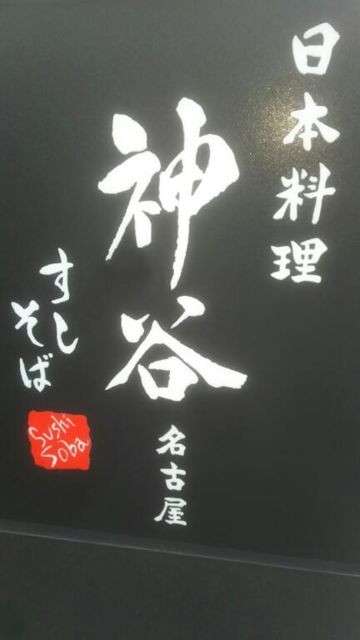 日本料理
神谷
名古屋
すし
そば
Sushi
Soba